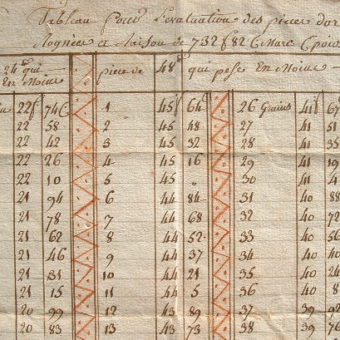 Tableau Pour l'evaluation des pieces d'or
Rognées a Raison de 732 f 82 c Marc
24 qui piece de 48 qui pese En Moins
En Moins
22 f 74 C 1 45 f 64 26 Grains 41 67
22 58 2 45 48 27 41 51
22 42 3 45 32 28 41
22 26 4 45 16 29 41 19
22 10 5 45
21 94 6 44 84 31 40 88
21 78 7 44 68 32 40
21 62 8 44 52 33 40
21 46 9 44 37 34 40
21 31 10 44 21 35 40 24
21 15 11 44 5 36 40 8
20 99 12 43 89 37 39 92
20 83 13 43 73 38 39 76